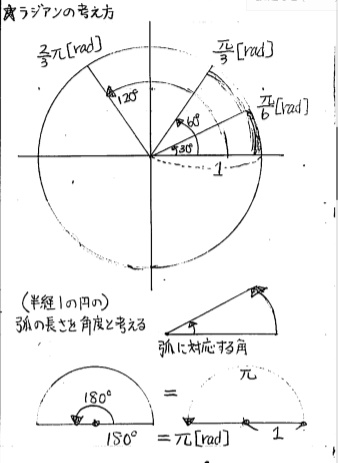 ☆ラジアンの考え方
2/3 π [rad]
π/3 [rad]
π/6 [rad]
120°
60°
30°
1
(半経1の円の)
弧の長さを角度と考える
弧に対応する角
180°
=
π
180° = π[rad]
1